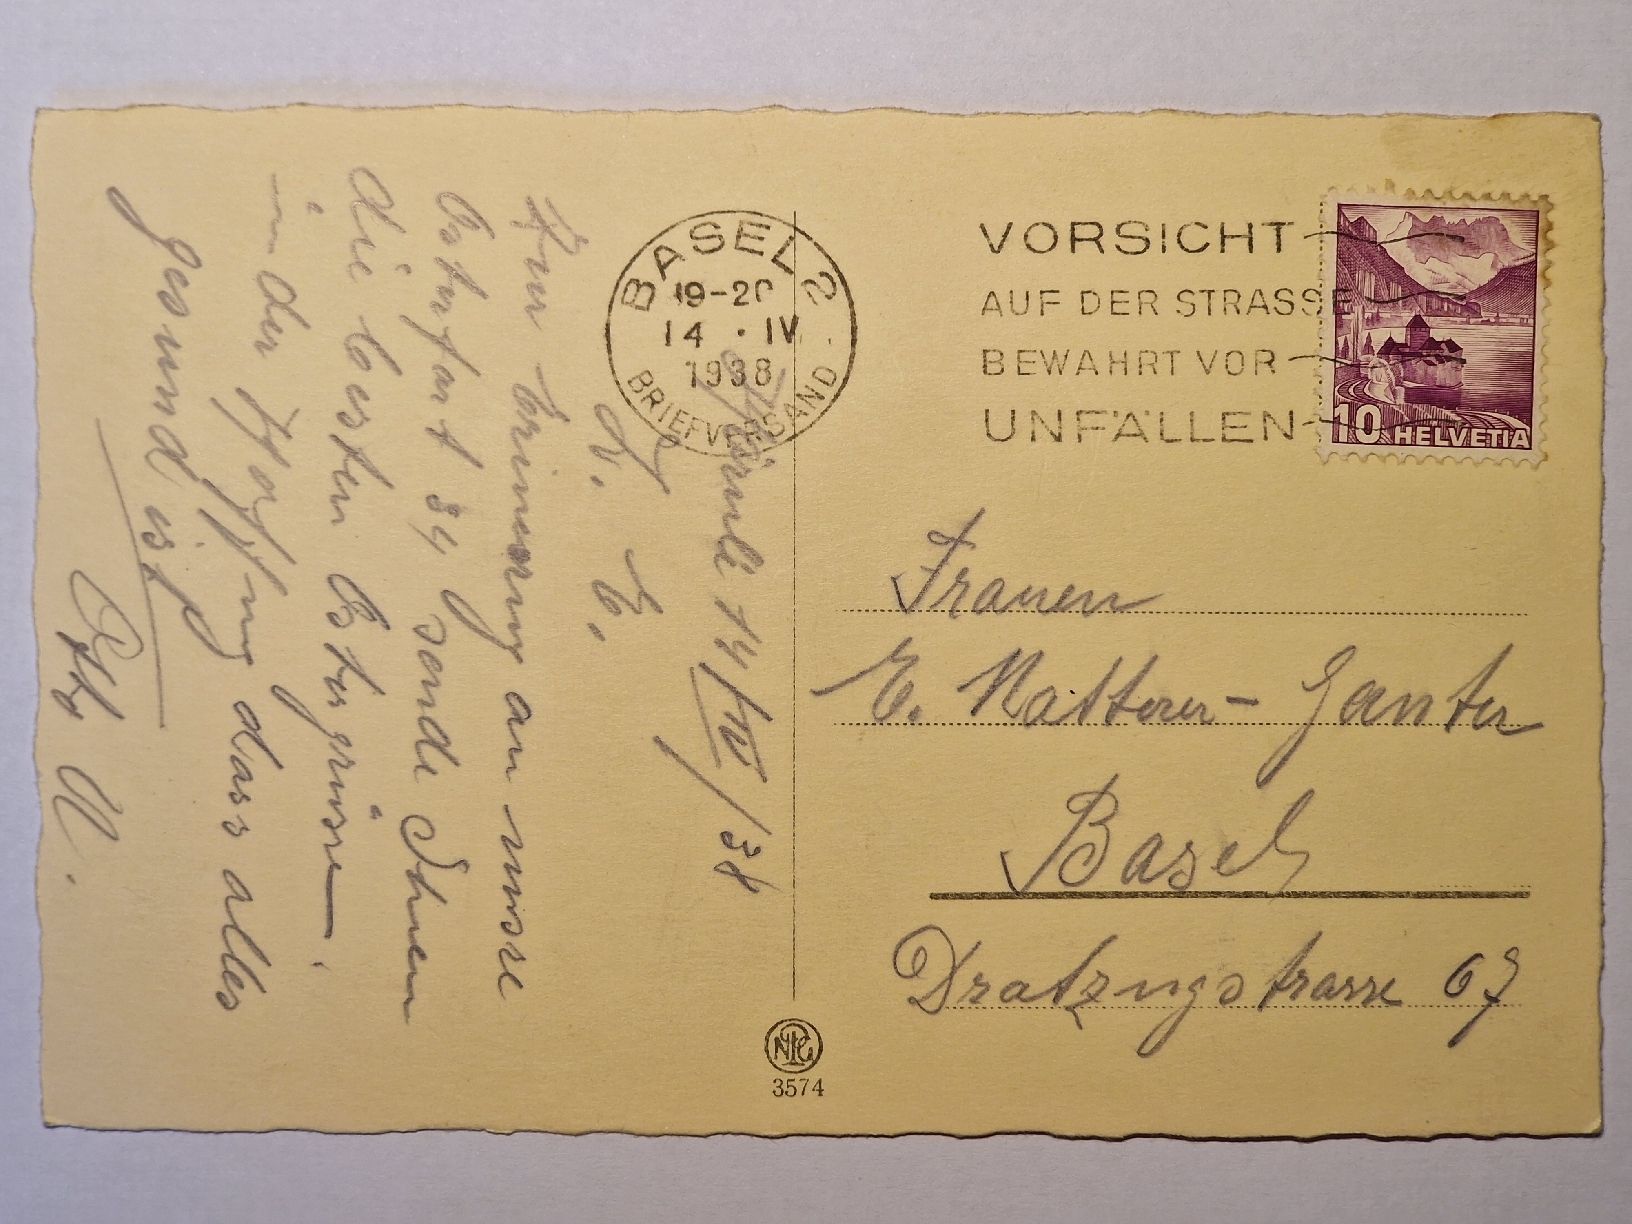 14/IV/38
L. E.
Zur Erinnerung an unsre
Osterfart 34 sende Ihnen
die besten Ostergrüsse
in der Hoffnung dass alles
gesund ist
Otto N.
BASEL 2
19-20
14 · IV
1938
BRIEFVERSAND
VORSICHT
AUF DER STRASSE
BEWAHRT VOR
UNFÄLLEN
10 HELVETIA
Frauen
E. Natterer-Ganter
Basel
Dratzugstrasse 67
NPG
3574